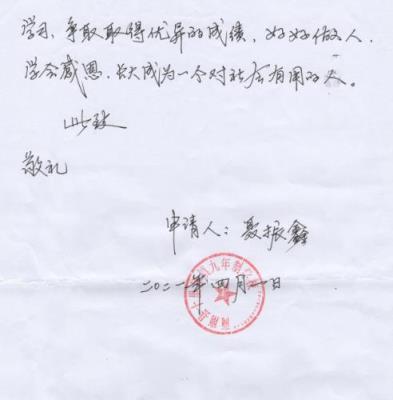 学习,争取取得优异的成绩,好好做人,
学会感恩,长大成为一个对社会有用的人。
此致
敬礼
申请人:聂振鑫
二〇二一年四月一日
九年制